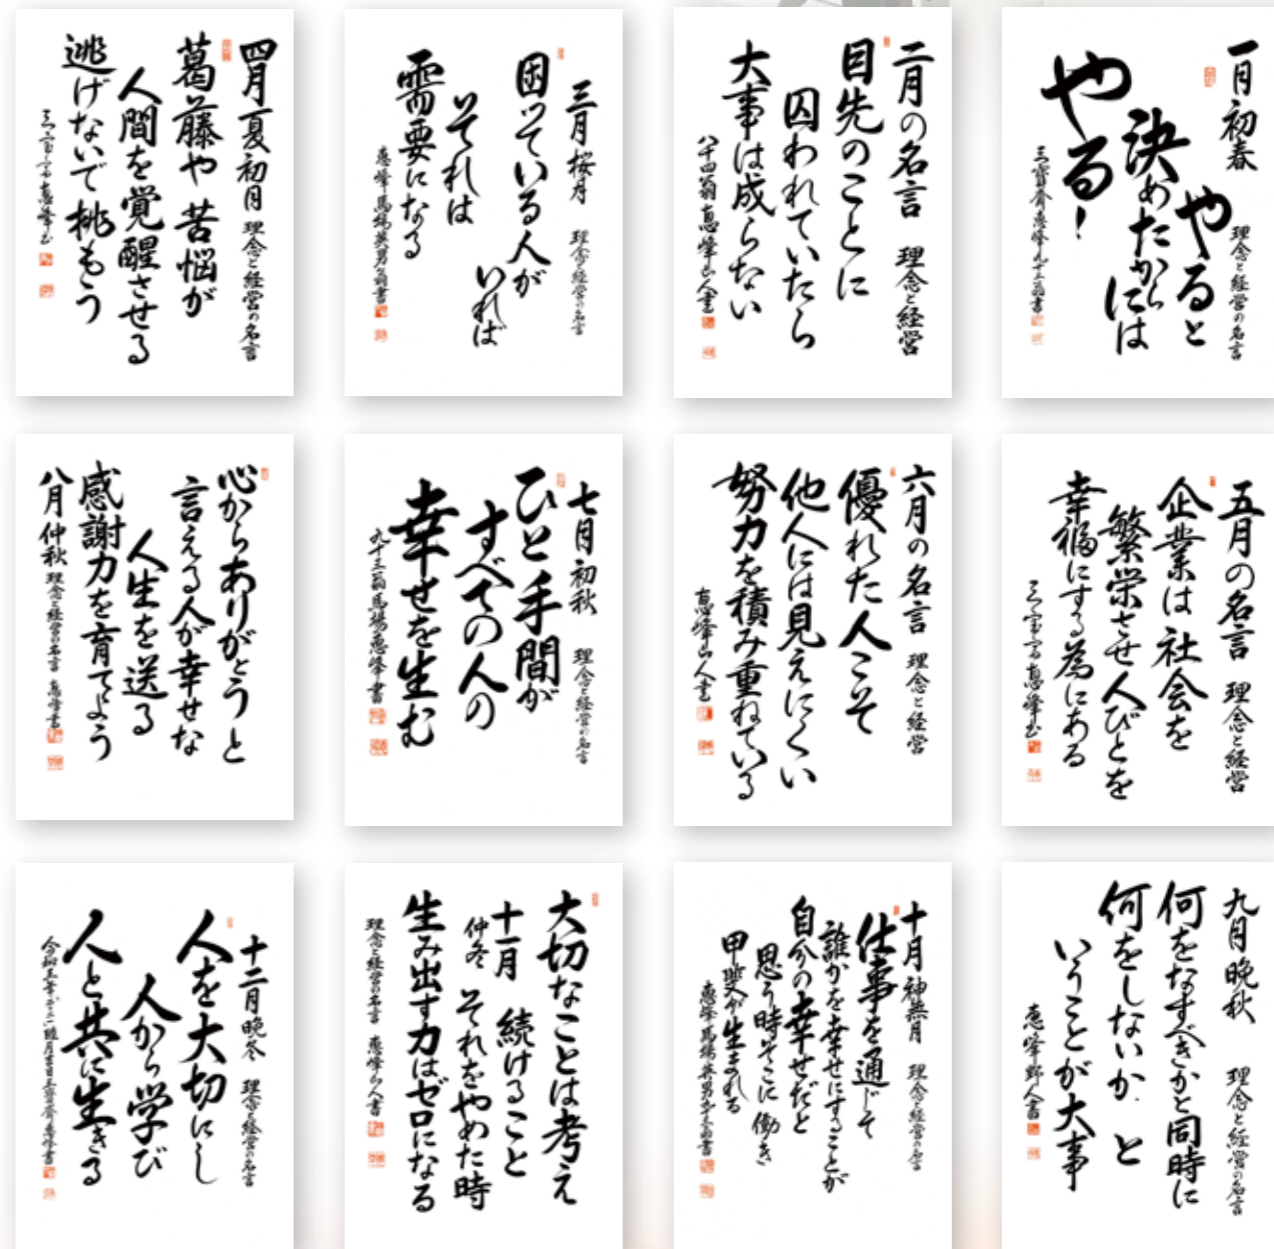 一月 初春 理念と経営の名言
やると
決めたからには
やる!
三寶齋 恵峰九十三翁書
二月の名言 理念と経営
目先のことに
囚われていたら
大事は成らない
八十四翁 恵峰山人書
三月 桜月 理念と経営の名言
困っている人が
いれば
それは
需要になる
恵峰馬場英男翁書
四月 夏初月 理念と経営の名言
葛藤や 苦悩が
人間を覚醒させる
逃げないで 挑もう
恵峰
五月の名言 理念と経営
企業は 社会を
繁栄させ 人びとを
幸福にする為にある
恵峰
六月の名言 理念と経営
優れた 人こそ
他人には見えにくい
努力を積み重ねている
恵峰山人書
七月 初秋 理念と経営の名言
ひと手間が
すべての人の
幸せを生む
九十三翁 馬場恵峰書
心からありがとうと
言える人が幸せな
人生を送る
感謝力を育てよう
八月 仲秋 理念と経営の名言 恵峰書
九月 晩秋 理念と経営の名言
何をなすべきかと同時に
何をしないか と
いうことが大事
恵峰野人書
十月 神無月 理念と経営の名言
仕事を通じて
誰かを幸せにすることが
自分の幸せだと
思う時そこに 働き
甲斐が生まれる
恵峰馬場英男九十三翁書
大切なことは考え
十一月 続けること
仲冬 それをやめた時
生み出す力はゼロになる
理念と経営の名言 恵峰山人書
十二月 晩冬 理念と経営の名言
人を大切にし
人から学び
人と共に生きる